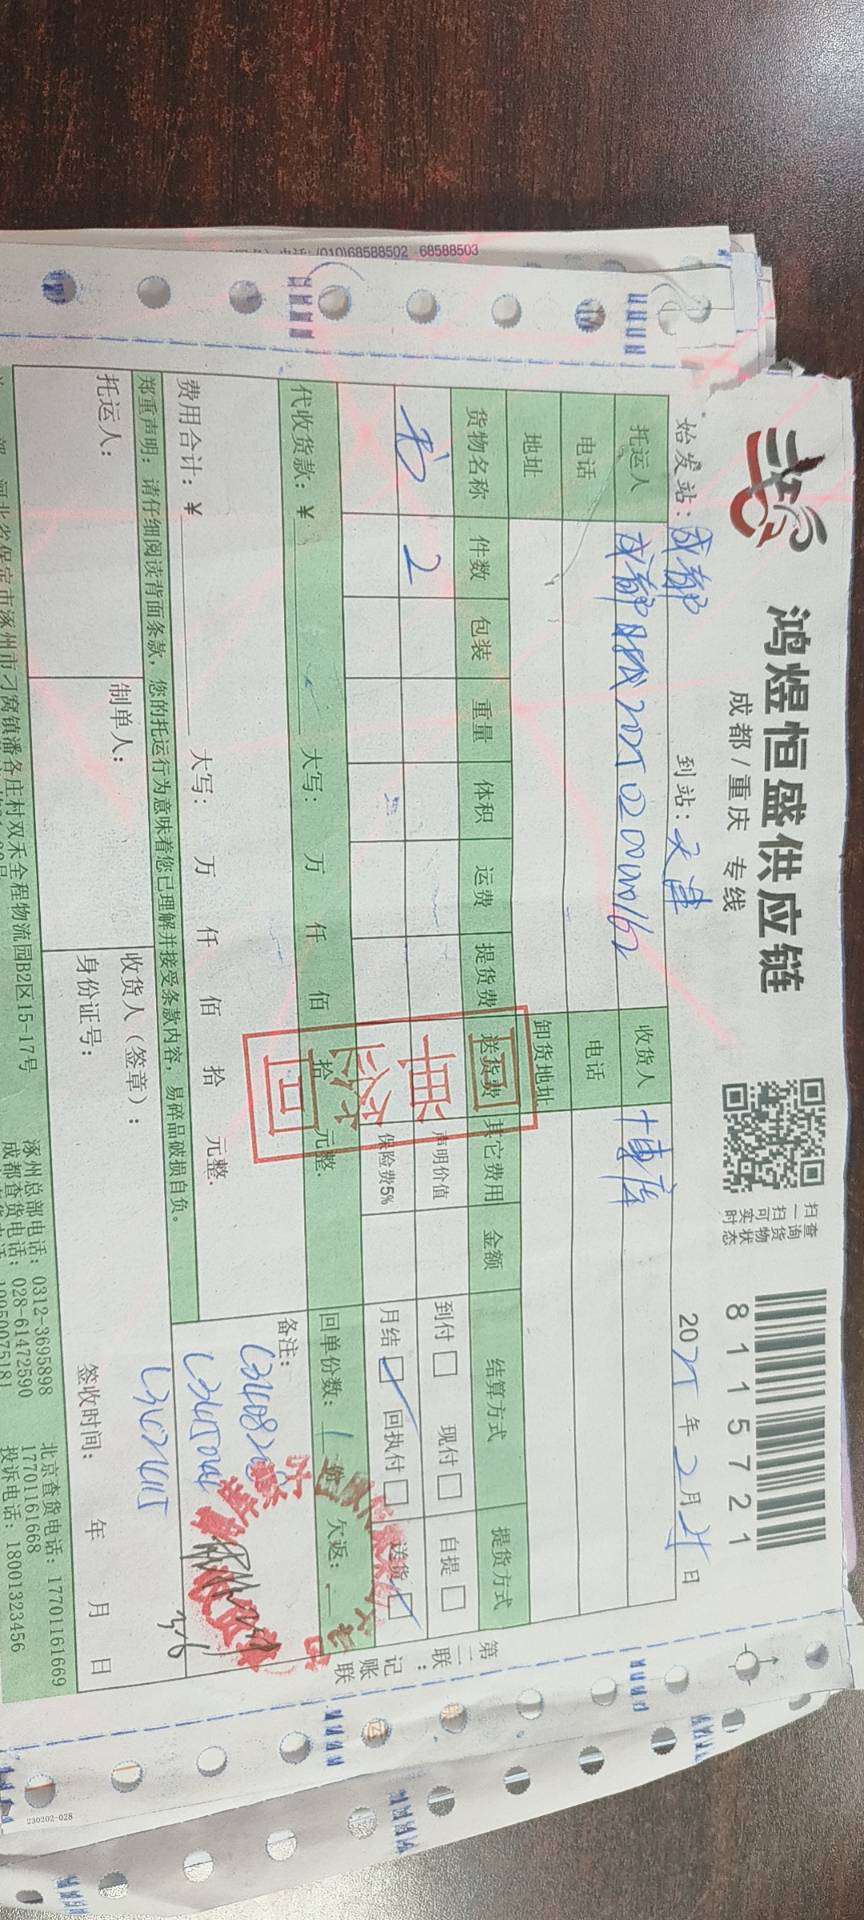 电话: (010)68588502 68588503
鸿煜恒盛供应链
成都/重庆 专线
扫一扫可实时
查询货物状态
8115721
始发站: 成都 到站: 天津 2025年2月21日
托运人 收货人 博库
电话 电话
地址 卸货地址
货物名称 件数 包装 重量 体积 运费 提货费 送货费 其它费用 金额 结算方式 提货方式
书 2 声明价值 到付 现付 自提
保险费5% 月结 回执付 送货
代收货款: ¥ 大写: 万 仟 佰 拾 元整. 回单份数: 1 欠返:
回单签回
费用合计: ¥ 大写: 万 仟 佰 拾 元整. 备注:
郑重声明: 请仔细阅读背面条款, 您的托运行为意味着您已理解并接受条款内容, 易碎品破损自负。
托运人: 制单人: 收货人(签章): 签收时间: 年 月 日
身份证号:
3.6
河北省保定市涿州市刁窝镇潘各庄村双禾全程物流园B2区15-17号
涿州总部电话: 0312-3695898 北京查货电话: 17701161669
成都查货电话: 028-61472590 17701161668
投诉电话: 18001323456
第二联: 记账联
230202-028